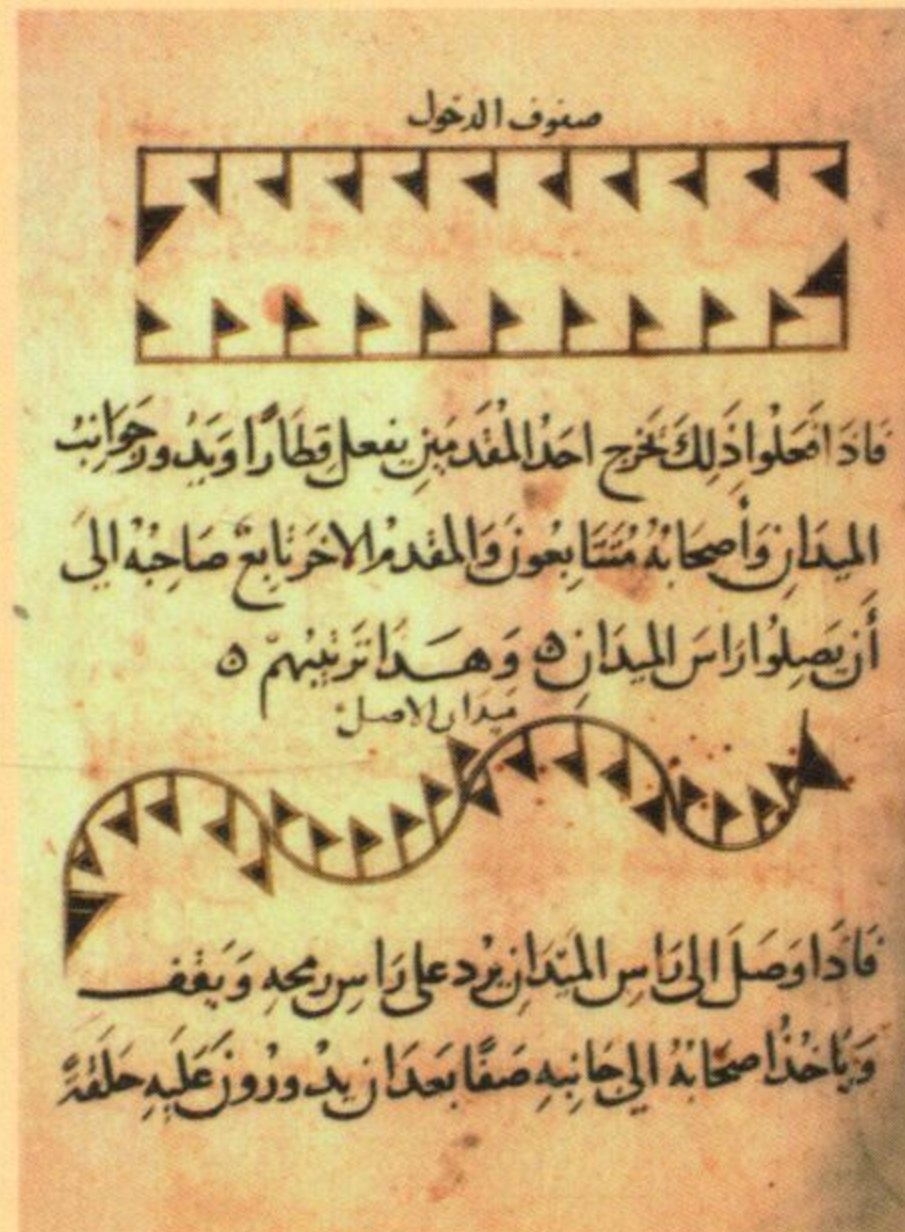 صفوف الدخول
فَاذَا فَعَلُوا ذَلِكَ يَخرج احَدُ المُقَدمَينِ يفعل قِطَارًا وَيَدُور جَوَانِبَ
الميدَانِ وَأَصحَابُهُ مُتَتَابِعُونَ وَالمقدمُ الاخَر تابعٌ صَاحِبُه الي
أَن يَصِلُوا رَاسَ الميدَانِ ۞ وَهَذَا تَرتيبُهمْ ۞
ميدان الاصل
فَاذَا وَصَلَ الى رَاسِ الميدَانِ يرُد على رَاسِ رمحِهِ وَيَقف
وَيَاخُذُ اصحَابُهُ الي جَانِبِهِ صَفًّا بَعدَ ان يدُورُونَ عَلَيهِ حَلقَةً